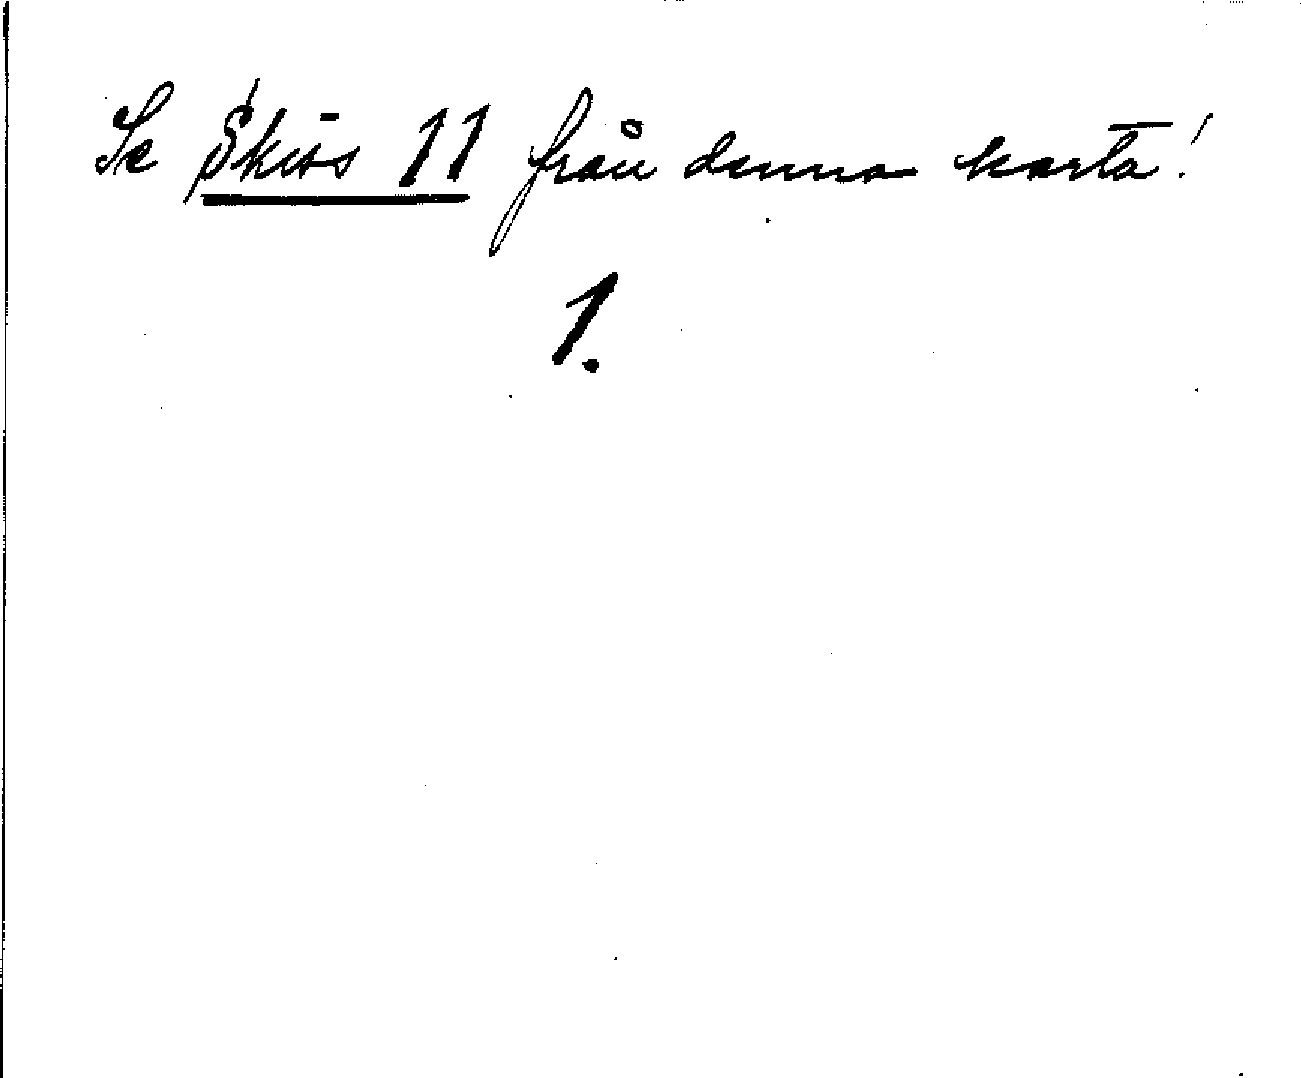 Se Skiss 11 från denna karta!
1.